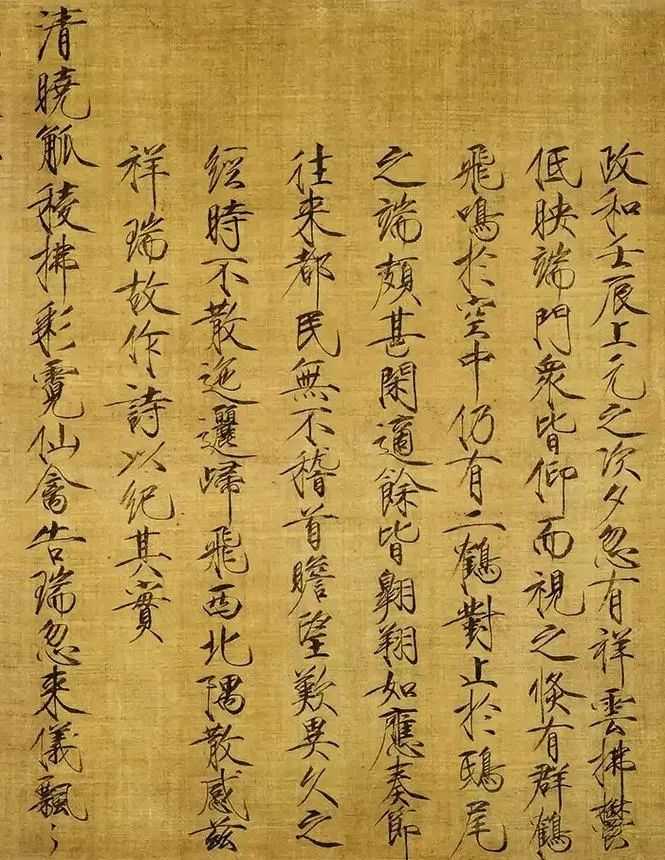 政和壬辰上元之次夕忽有祥雲拂鬱
低映端門衆皆仰而視之倏有群鶴
飛鳴於空中仍有二鶴對止於鴟尾
之端頗甚閑適餘皆翺翔如應奏節
往来都民無不稽首瞻望歎異久之
經時不散迤邐歸飛西北隅散感兹
祥瑞故作詩以紀其實
清曉觚稜拂彩霓仙禽告瑞忽来儀飄〻